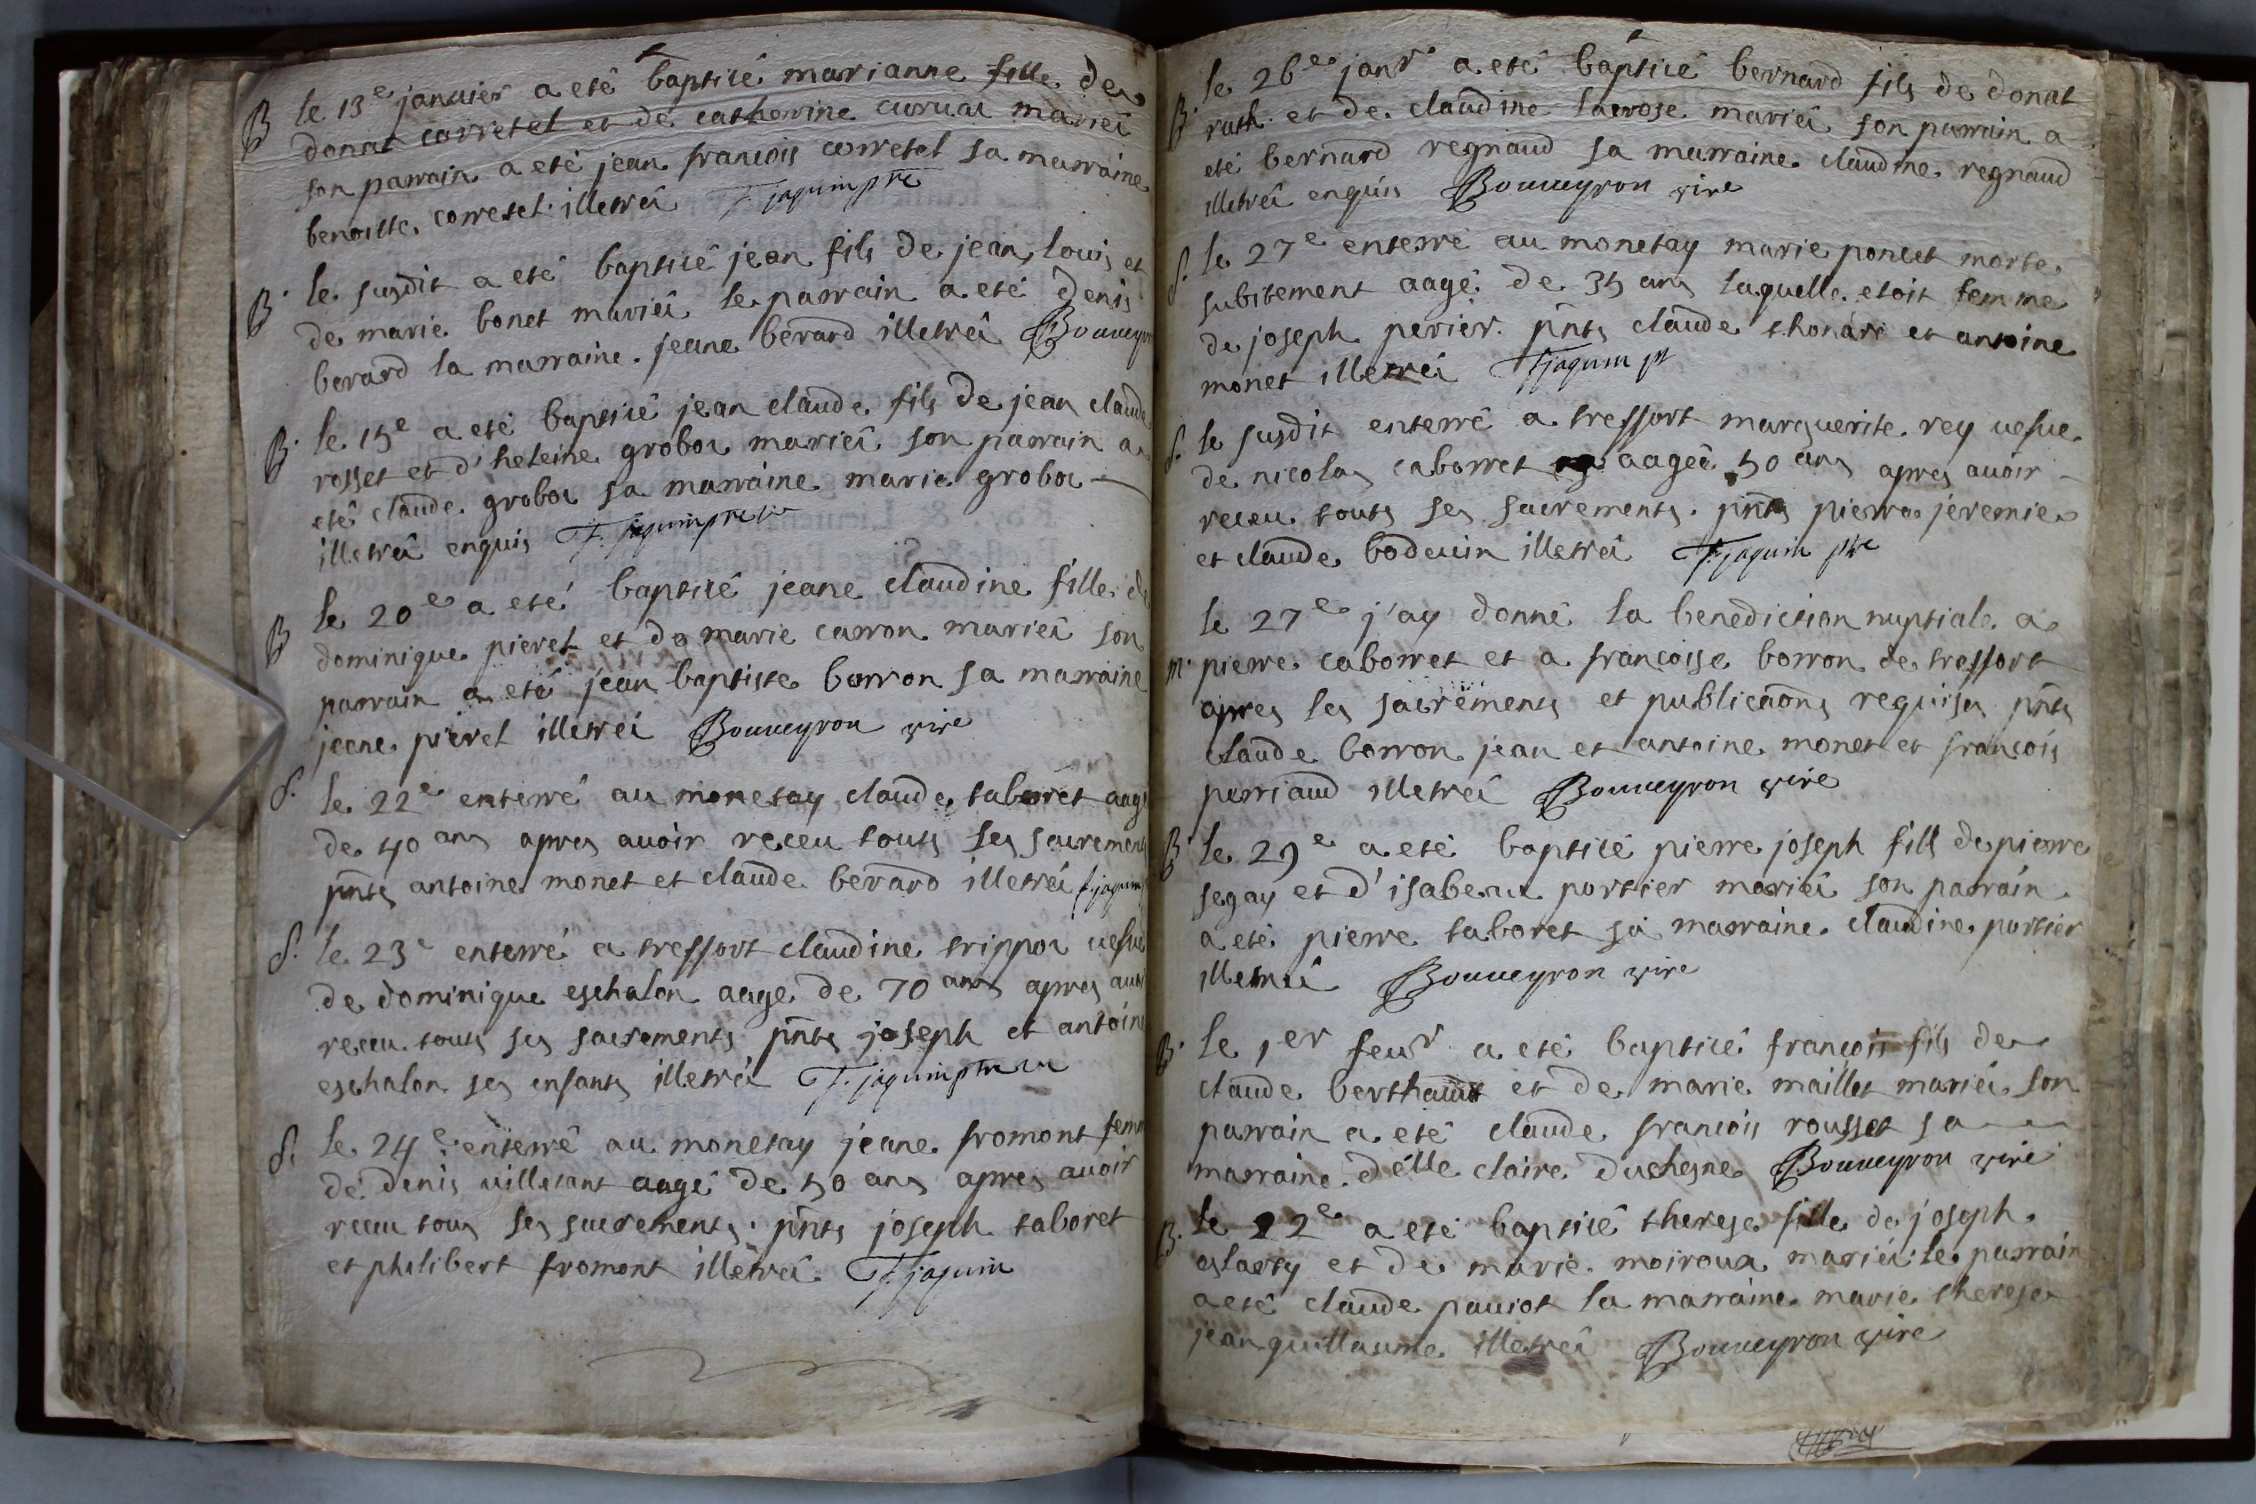 B le 13e januier a eté baptisé marianne fille de
donat corretel et de catherine curuai mariéi
son parrain a eté jean francois corretel sa marraine
benoitte corretel illetréi F jaquim ptre
B. le susdit a eté baptisé jean fils de jean louis et
de marie bonet mariéi le parrain a eté denis
berard la marraine jeane berard illetréi Bouueyron
B. le 15e a eté baptisé jean claude fils de jean claude
rosset et d'heleine grobou mariéi son parrain a
eté claude grobou sa marraine marie grobou
illetréi enquis F. jaquim ptre
B le 20e a eté baptisé jeane claudine fille de
dominique pieret et de marie carron mariéi son
parrain a eté jean baptiste borron sa marraine
jeane pieret illetréi Bouueyron vire
S. le 22e enterré au monetay claude taboret aagé
de 40 ans apres auoir receu touts ses sacrements
pnts antoine monet et claude berard illetréi f jaquim
S. le 23e enterré a tressort claudine trippou uesue
de dominique eschalon aage de 70 ans apres auoir
receu touts ses sacrements pnts joseph et antoine
eschalon ses enfants illetréi F. jaquim ptre
S. le 24e enterré au monetay jeane fromont femme
de denis uilletant aagé de 50 ans apres auoir
receu tous ses sacrements pnts joseph taboret
et philibert fromont illetréi F. jaquim
B. le 26e janr a eté baptisé bernard fils de donat
ruth et de claudine lacrose mariéi son parrain a
eté bernard regnaud sa marraine claudine regnaud
illetréi enquis Bouueyron vire
S. le 27e enterré au monetay marie poncet morte
subitement aagé de 35 ans laquelle etoit femme
de joseph perier pnts claude thonare et antoine
monet illetréi F jaquim pt
S. le susdit enterré a tressort marguerite rey uesue
de nicolas caborret aagéé 50 ans apres auoir
receu touts ses sacrements pnts pierre jeremie
et claude boduin illetréi F. jaquim ptre
le 27e j'ay donné la benediction nuptiale a
m. pierre caborret et a francoise borron de tressort
apres les sacrements et publicaons requises pnts
claude borron jean et antoine monet et francois
perriaud illetréi Bouueyron vire
B le 29e a eté baptisé pierre joseph fils de pierre
segay et d'isabeau portier mariéi son parrain
a eté pierre taboret sa marraine claudine portier
illetréi Bouueyron vire
B. le 1er feur a eté baptisé francois fils de
claude berthaud et de marie maillet mariéi son
parrain a eté claude francois rousset sa
marraine delle claire duchesne Bouueyron vire
B. le 22e a eté baptisé therese fille de joseph
eslaery et de marie moiroux mariéi le parrain
a eté claude pauiot la marraine marie therese
jean guillaume illetréi Bouueyron vire